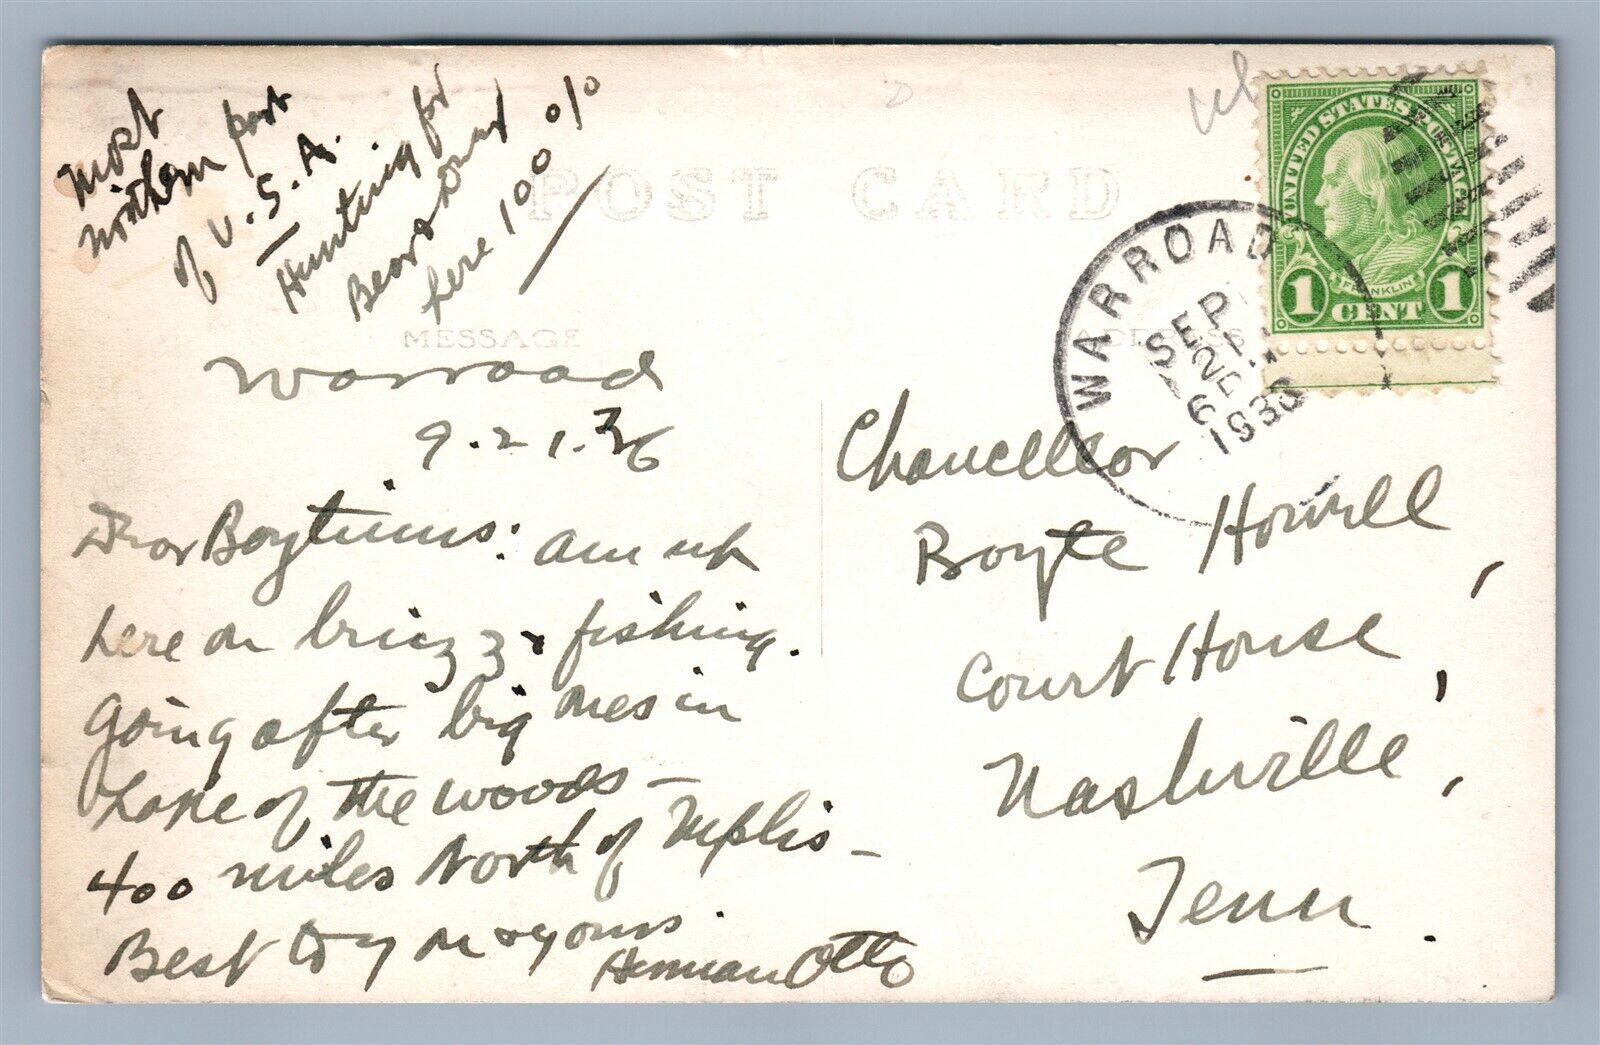 Most
Northern part
of U.S.A.
Hunting for
Bear & Deer
here 100 %
POST CARD
MESSAGE
ADDRESS
Warroad
9.21.36
Dear Boytinus: am up
here on & fishing.
Going after big ones in
Lake of the Woods —
400 miles North of Mplis —
Best to you & yours.
Herman Otto
WARROAD
SEP
21
6
193
UNITED STATES POSTAGE
FRANKLIN
1 CENT 1
Chancellor
Boyte Howell,
Court House,
Nashville,
Tenn.